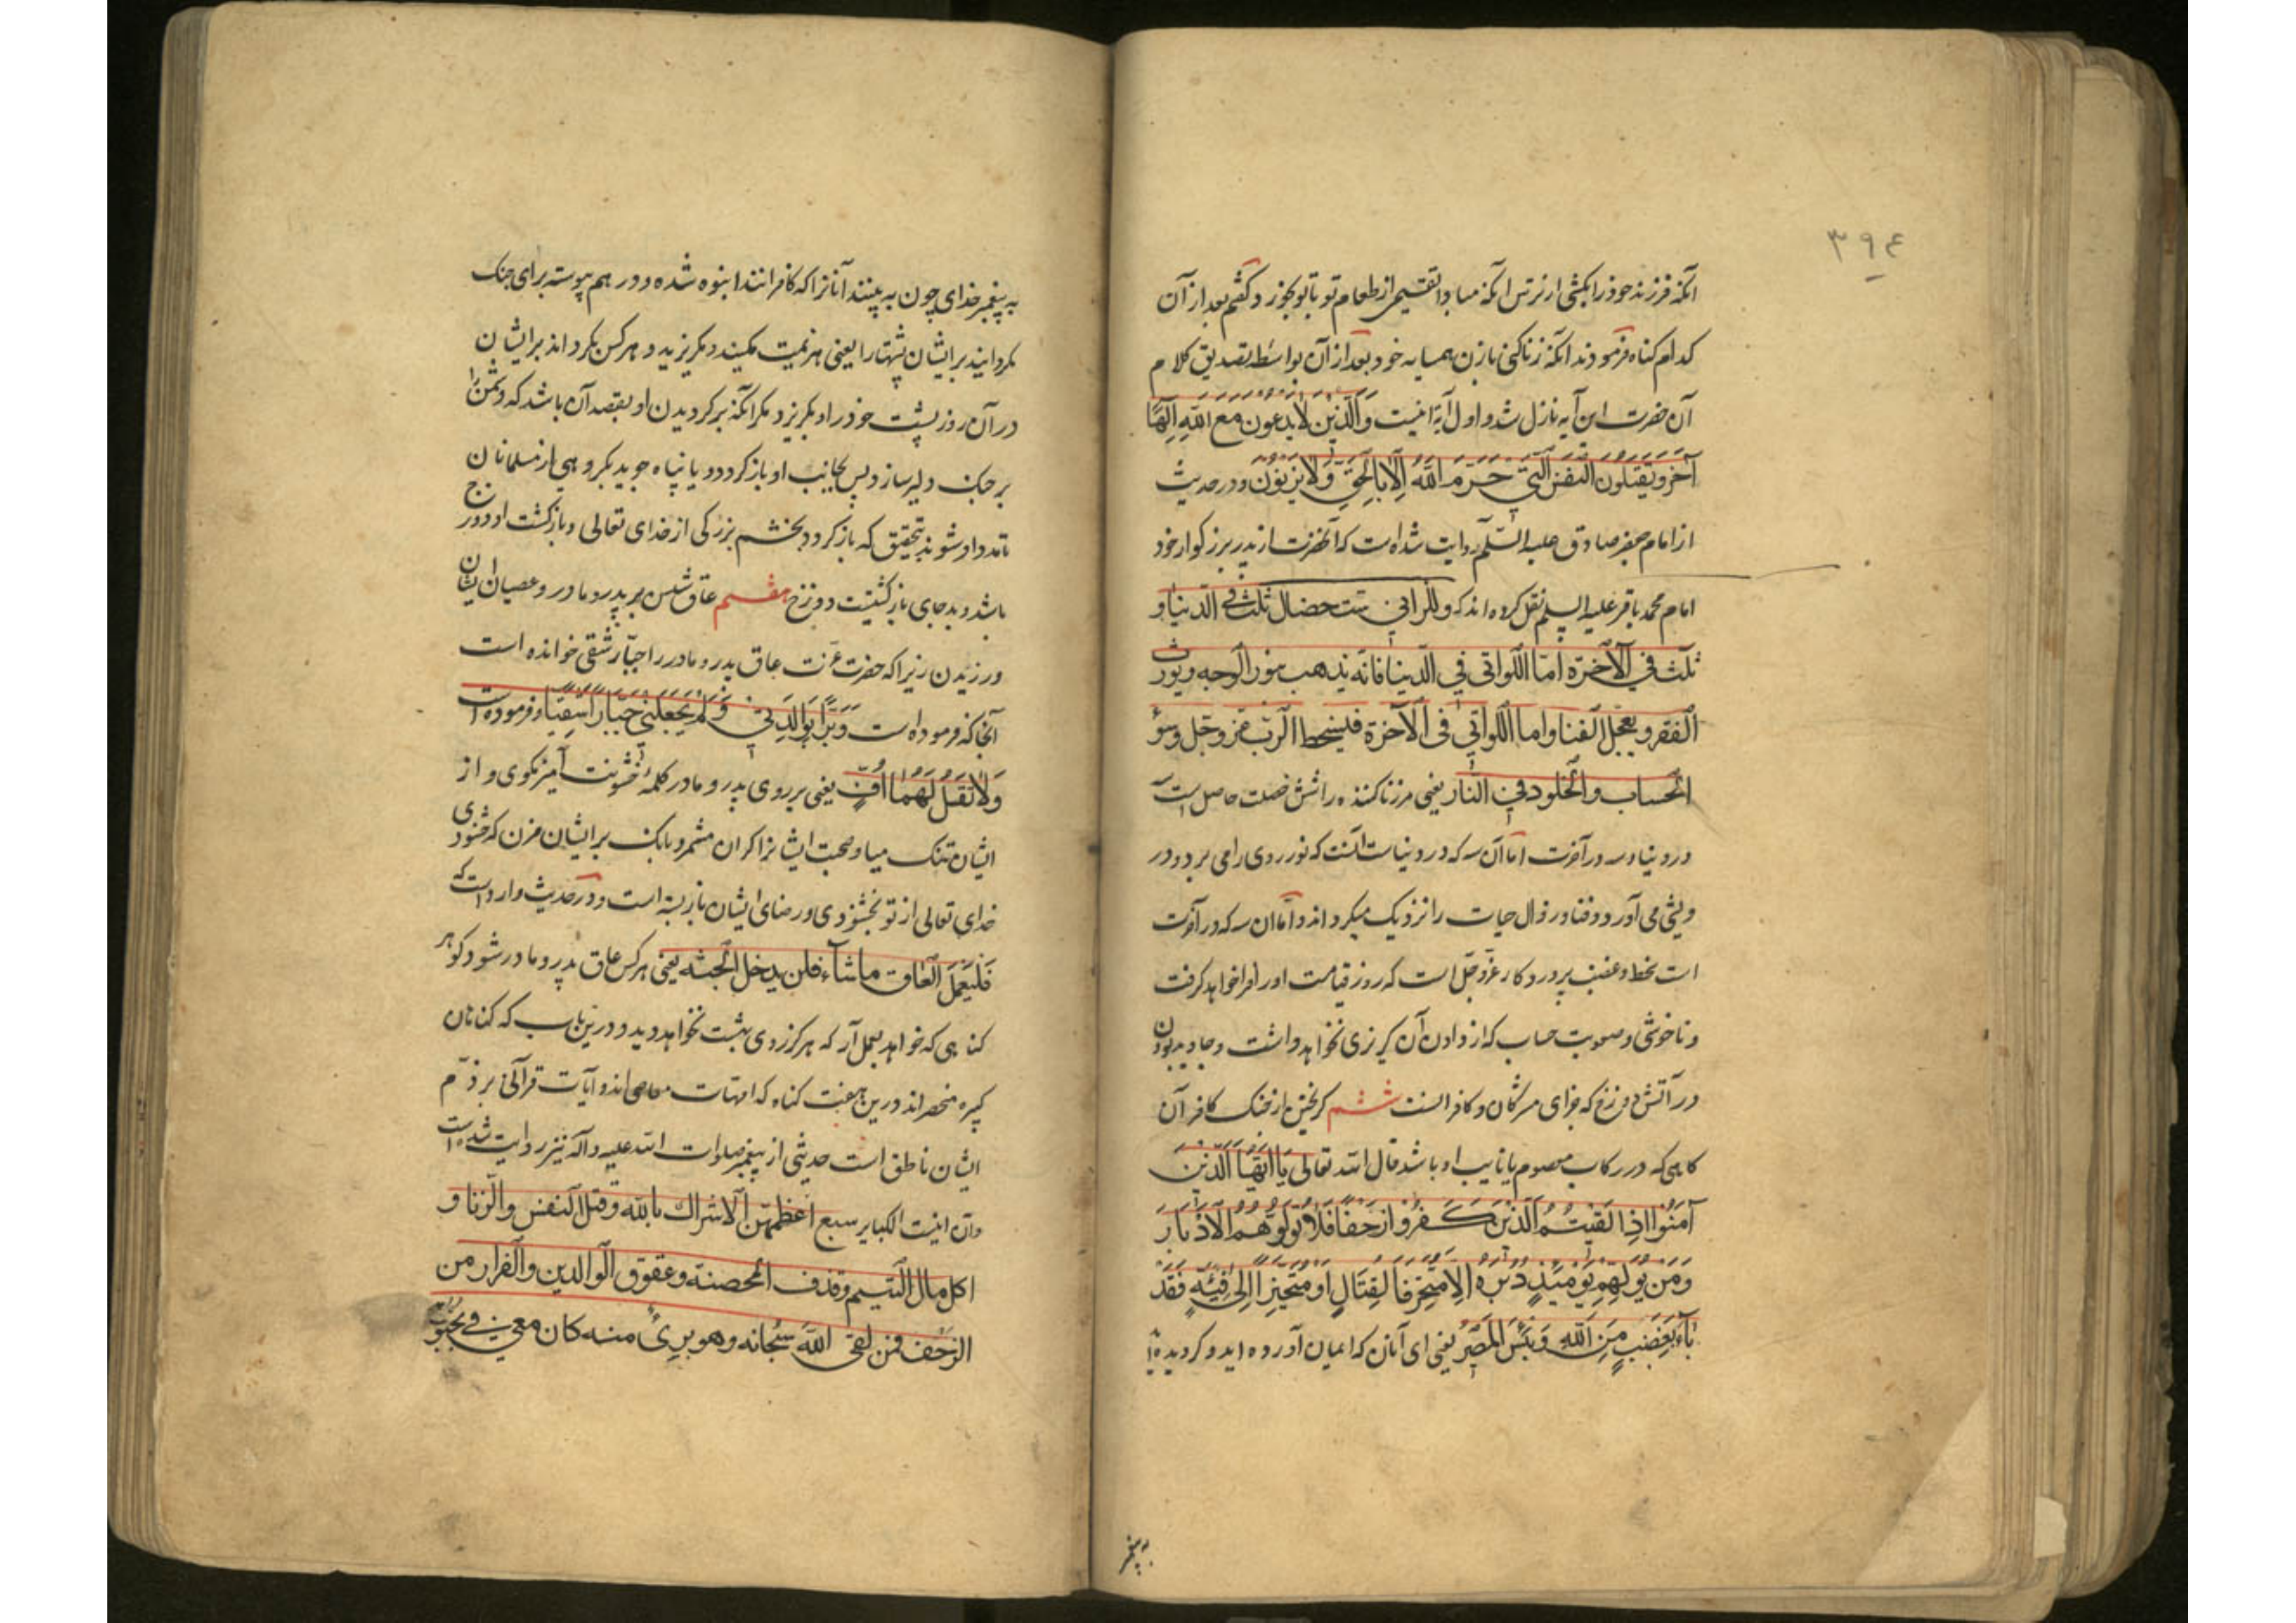 ۳۹۴
آنکه فرزند خود را بکشی از ترس آنکه مبادا تقسیم از طعام تو با تو بخورد گفتم بعد از آن
کدام گناه فرمودند آنکه زنا کنی با زن همسایه خود بعد از آن بواسطه تصدیق کلام
آن حضرت این آیه نازل شد و اول آیة اینست وَالَّذِینَ لَا یَدعُونَ مَعَ اللّهِ اِلٰهًا
آخَرَ وَیَقتُلُونَ النَّفسَ الَّتِی حَرَّمَ اللّهُ اِلَّا بِالحَقِّ وَلَا یَزنُونَ و در حدیث
از امام جعفر صادق علیه السّلم روایت شده است که آنحضرت از پدر بزرگوار خود
امام محمد باقر علیه السلم نقل کرده اند که وللزانی ست خصال ثلث فی الدنیا و
ثلث فی الآخرة امّا اللواتی فی الدّنیا فانّه یذهب بنور الوجه ویورث
الفقر و یعجل الفنا واما اللواتی فی الآخرة فلیسخط الرّب عزوجل وسؤ
الحساب والخلود فی النّار یعنی مر زنا کننده را شش خصلت حاصل است
در دنیا و سه در آخرت امّا آن سه که در دنیاست آنست که نور روی را می برد و در
ویشی می آورد و فنا و زوال حیات را نزدیک میگرداند و امّا آن سه که در آخرت
است سخط و غضب پروردکار عزّوجلّ است که روز قیامت او را فرا خواهد گرفت
و ناخوشی و صعوبت حساب که از دادن آن گریزی نخواهد داشت و جاوید بودن
در آتش دوزخ که جزای مشرکان و کافرانست ششم گریختن از جنک کافران
کاهی که در رکاب معصوم یا نایب او باشد قال الله تعالی یَا اَیُّهَا الَّذِینَ
آمَنُوا اِذَا لَقِیتُمُ الَّذِینَ کَفَرُوا زَحفًا فَلَا تُوَلُّوهُمُ الاَدبَارَ
وَمَن یُوَلِّهِم یَومَئِذٍ دُبُرَهُ اِلَّا مُتَحَرِّفًا لِقِتَالٍ اَو مُتَحَیِّزًا اِلٰی فِئَةٍ فَقَد
بَآءَ بِغَضَبٍ مِنَ اللّهِ وَبِئسَ المَصِیرُ یعنی ای آنان که ایمان آورده اید و گرویده اید
به پیغمبر
به پیغمبر خدای چون به بینند آنانرا که کافرانند انبوه شده و در هم پیوسته برای جنک
مگردانید بر ایشان پشتها را یعنی هزیمت مکنید و مگریزید و هر کس بگرداند بر ایشان
در آن روز پشت خود را و بگریزد مگر آنکه برگردیدن او بقصد آن باشد که دشمن را
بر جنک دلیر سازد پس بجانب او باز گردد و یا پناه جوید بگروهی از مسلمانان
تا مدد او شوند بتحقیق که باز گردد بخشم بزرگی از خدای تعالی و بازگشت او دوزخ
باشد و بد جای بازگشتیست دوزخ هفتم عاق شدن بر پدر و مادر و عصیان ایشان
ورزیدن زیرا که حضرت عزّت عاق پدر و مادر را جبّار شقی خوانده است
آنجا که فرموده است وَبَرًّا بِوَالِدَتِی وَلَم یَجعَلنِی جَبَّارًا شَقِیًّا و فرموده است
وَلَا تَقُل لَهُمَا اُفٍّ یعنی بر روی پدر و مادر کلمهٔ خشونت آمیز مگوی و از
ایشان تنک میا و صحبت ایشانرا گران مشمر و بانک بر ایشان مزن که خشنودی
خدای تعالی از تو بخشنودی و رضای ایشان باز بسته است و در حدیث وارد است که
فَلیَعمَلِ العَاق ماشآء فلن یدخل الجنّه یعنی هر کس عاق پدر و مادر شود گو هر
گناهی که خواهد بعمل آر که هرگز روی بهشت نخواهد دید و درین باب که گناهان
کبیره منحصراند درین هفت گناه که امّهات معاصی اند و آیات قرآنی بر ذمّ
ایشان ناطق است حدیثی از پیغمبر صلوات الله علیه وآله نیز روایت شده است
و آن اینست الکبایر سبع اعظمهنّ الاشراك بالله وقتل النفس والزنا و
اکل مال الیتیم وقذف المحصنة وعقوق الوالدین والفرار من
الزحف فمن لقی اللهَ سبحانه وهو بریٌ منه کان معی فی بحبوبة